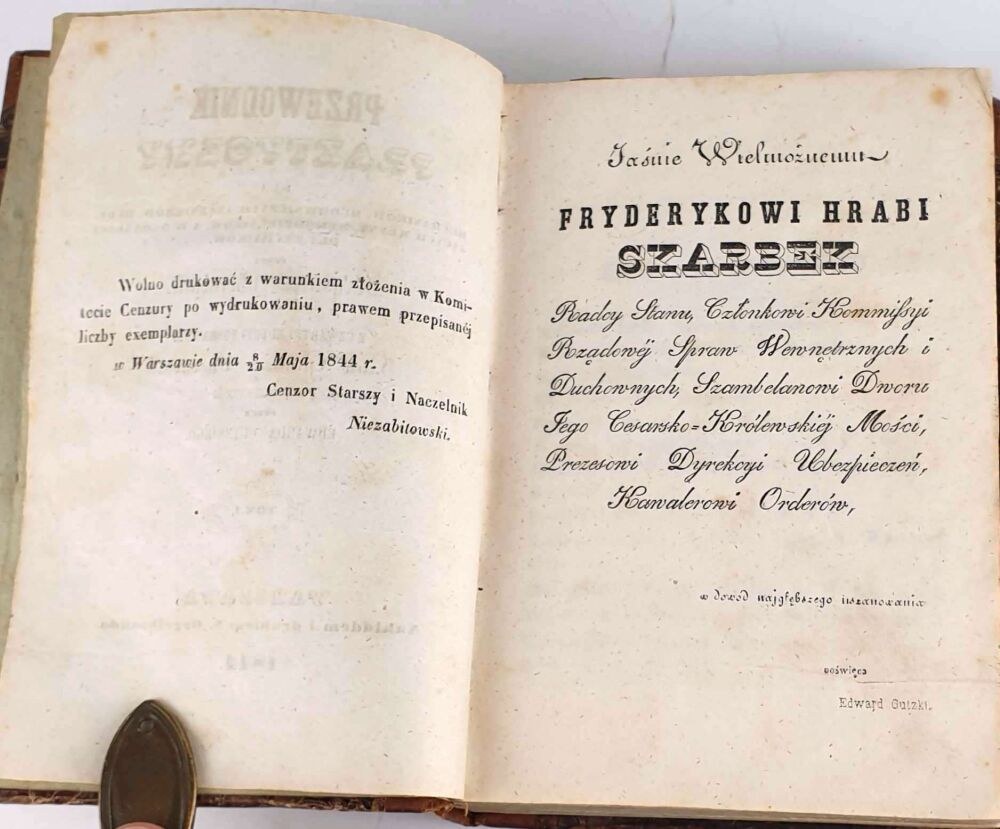 Wolno drukować z warunkiem złożenia w Komi-
tecie Cenzury po wydrukowaniu, prawem przepisanéj
liczby exemplarzy.
w Warszawie dnia 8/20 Maja 1844 r.
Cenzor Starszy i Naczelnik
Niezabitowski.
Jaśnie Wielmożnemu
FRYDERYKOWI HRABI
SKARBEK
Radcy Stanu, Członkowi Kommissyi
Rządowéj Spraw Wewnętrznych i
Duchownych, Szambelanowi Dworu
Jego Cesarsko=Królewskiéj Mości,
Prezesowi Dyrekcyi Ubezpieczeń,
Kawalerowi Orderów,
w dowód najgłębszego uszanowania
poświęca
Edward Gutzki.